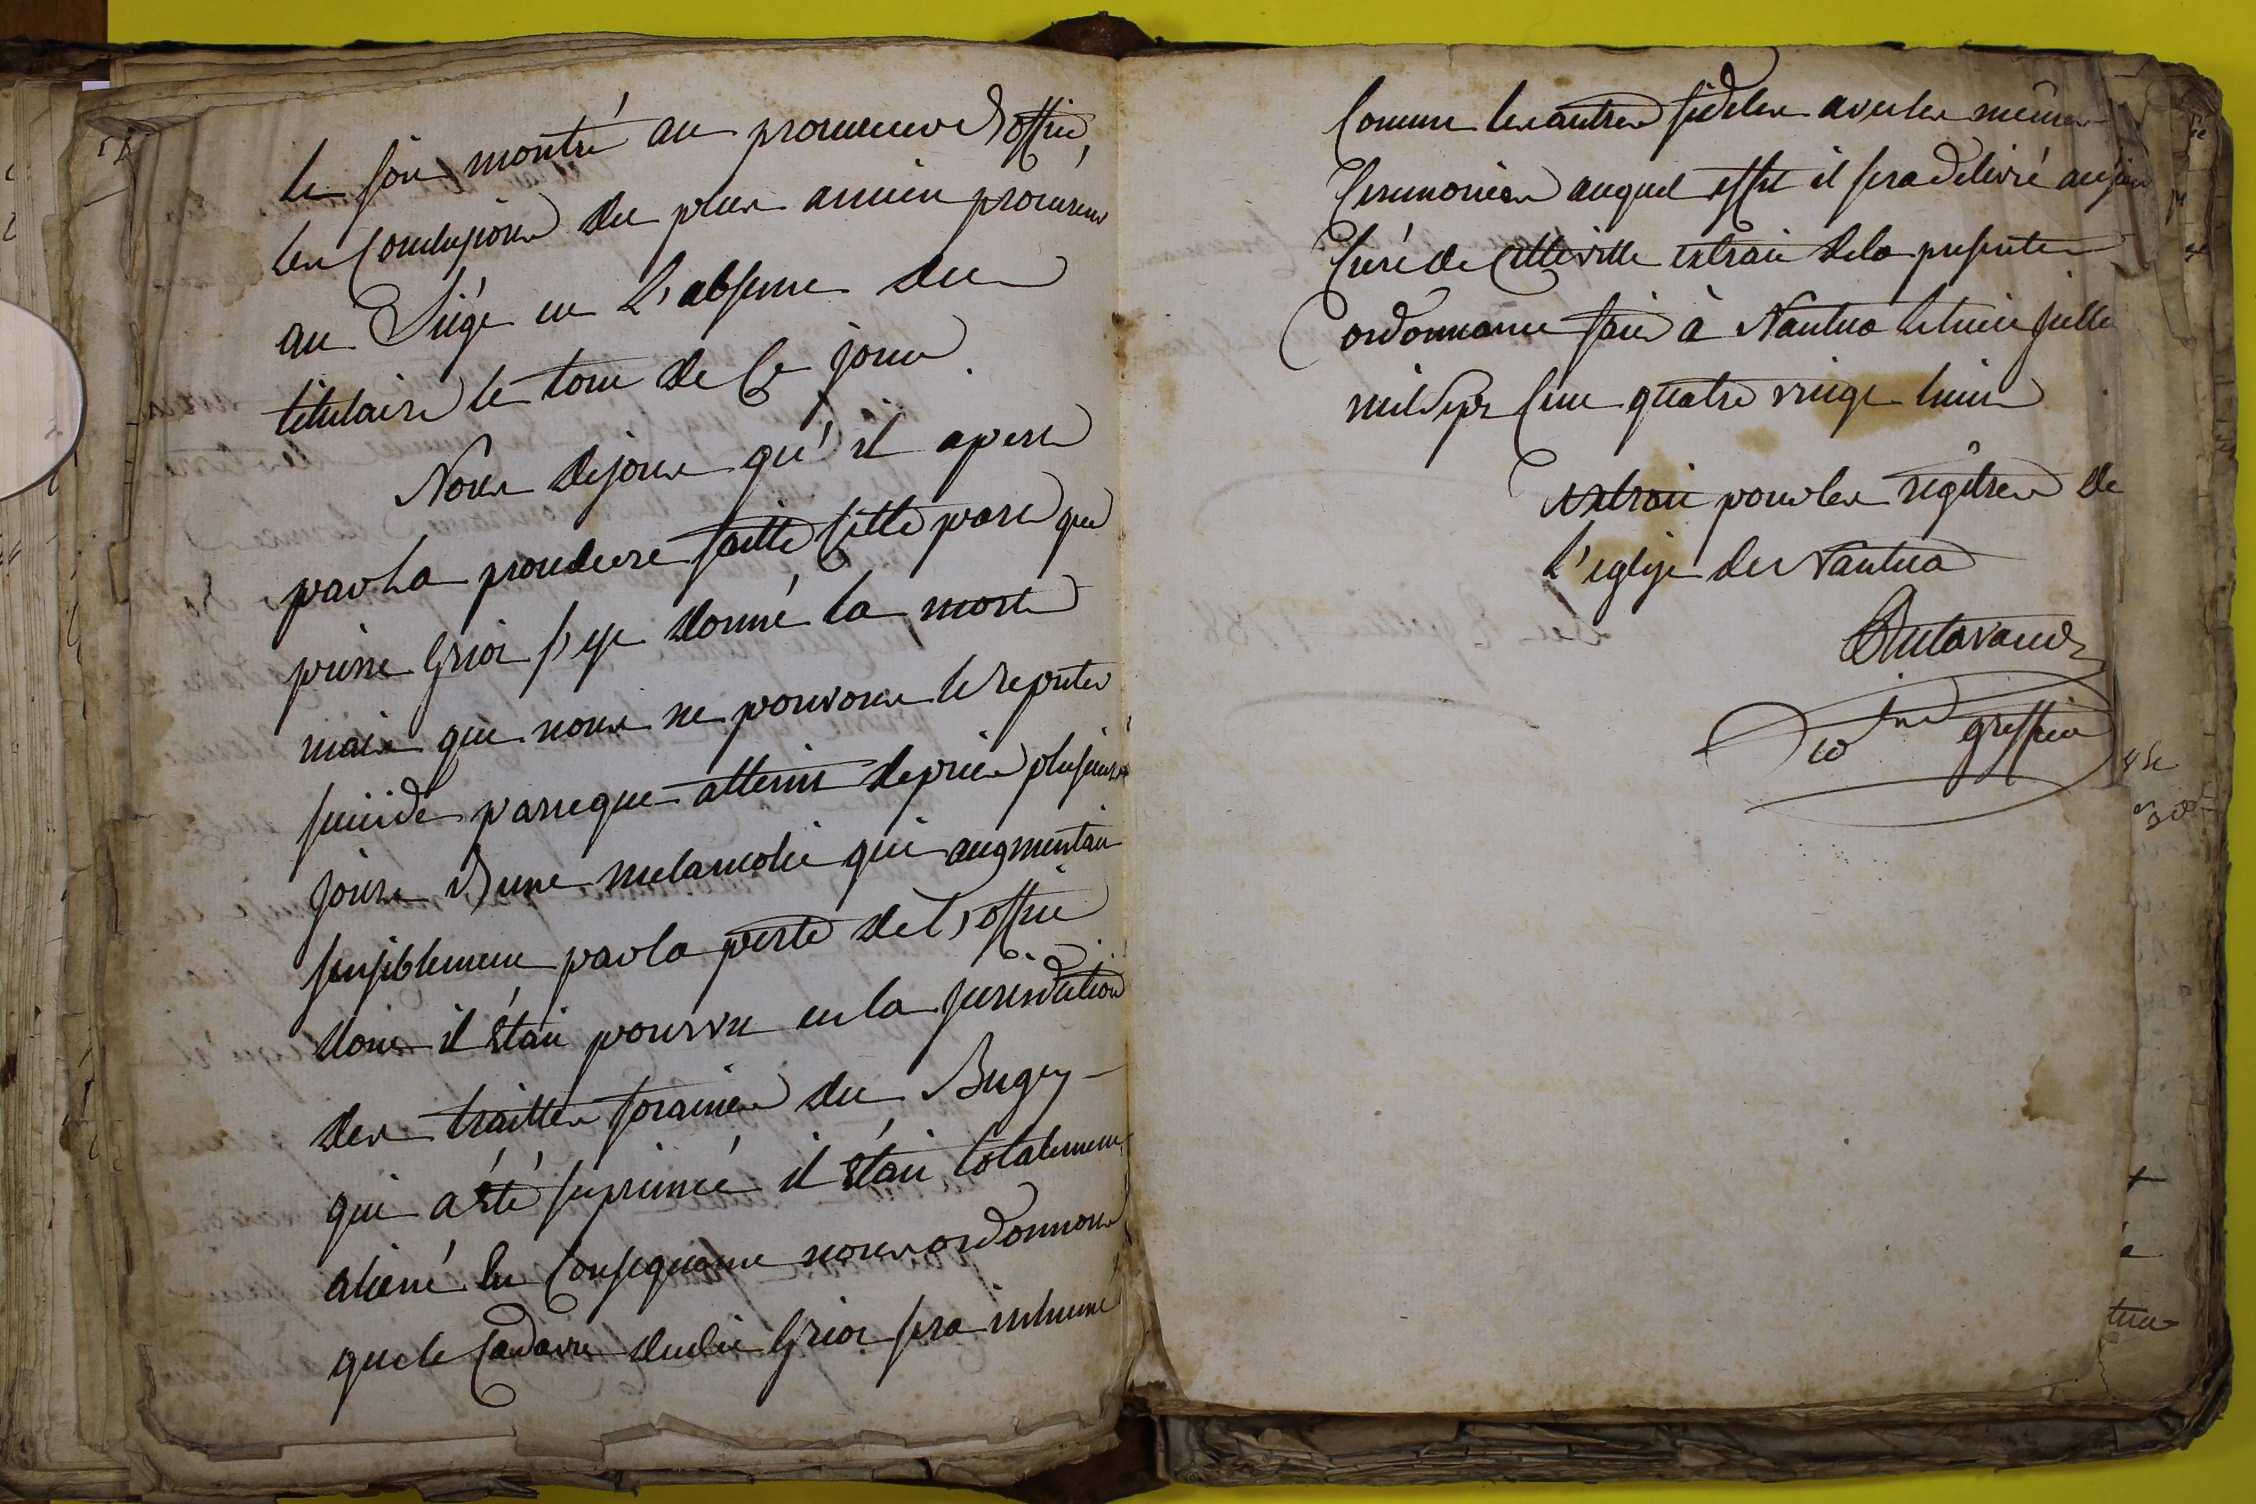 le soit montré au procureur d'office,
les conclusions du plus ancien procureur
au siége en l'absence du
titulaire le tout de ce jour.
Nous disons qu'il apert
par la procedure faitte cette part que
pierre Grioz s'est donné la mort
mais que nous ne pouvons le reputer
suicide parceque atteint depuis plusieurs
jours d'une melancolie qui augmentait
sensiblement par la perte de l'office
dont il était pourvu en la jurisdiction
des traittes foraines du Bugey
qui a été suprimée il était totalement
aliené en consequence nous ordonnons
que le cadavre dudit Grioz sera inhumé
comme les autres fideles avec les mêmes
ceremonies auquel effet il sera delivré au sieur
curé de cette ville extrait de la presente
ordonnance fait à Nantua le huit juillet
mil sept cent quatre vingt huit
extrait pour les régîtres de
l'eglise de Nantua
greffier